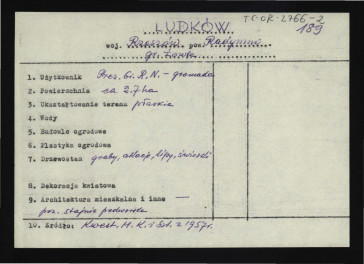 TG-OR-2766-2
LUDKÓW
189
woj. Rzeszów pow. Radymno
gr. Zarzec
1. Użytkownik Prez. G. R. N. – gromada
2. Powierzchnia ca 2.7 ha
3. Ukształtowanie terenu płaskie
4. Wody
5. Budowle ogrodowe
6. Plastyka ogrodowa
7. Drzewostan graby, akacje, lipy, świerki
8. Dekoracja kwiatowa
9. Architektura mieszkalna i inne —
poz. stajnia podworska
10. Źródło: Kwest. M. K. i Szt. z 1957 r.